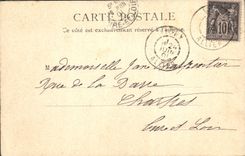 CARTE POSTALE
Ce côté est exclusivement réservé à l'adresse
10
ALLIER
Mademoiselle Jane Charpentier
Rue de la Barre
Chartres
Eure et Loir